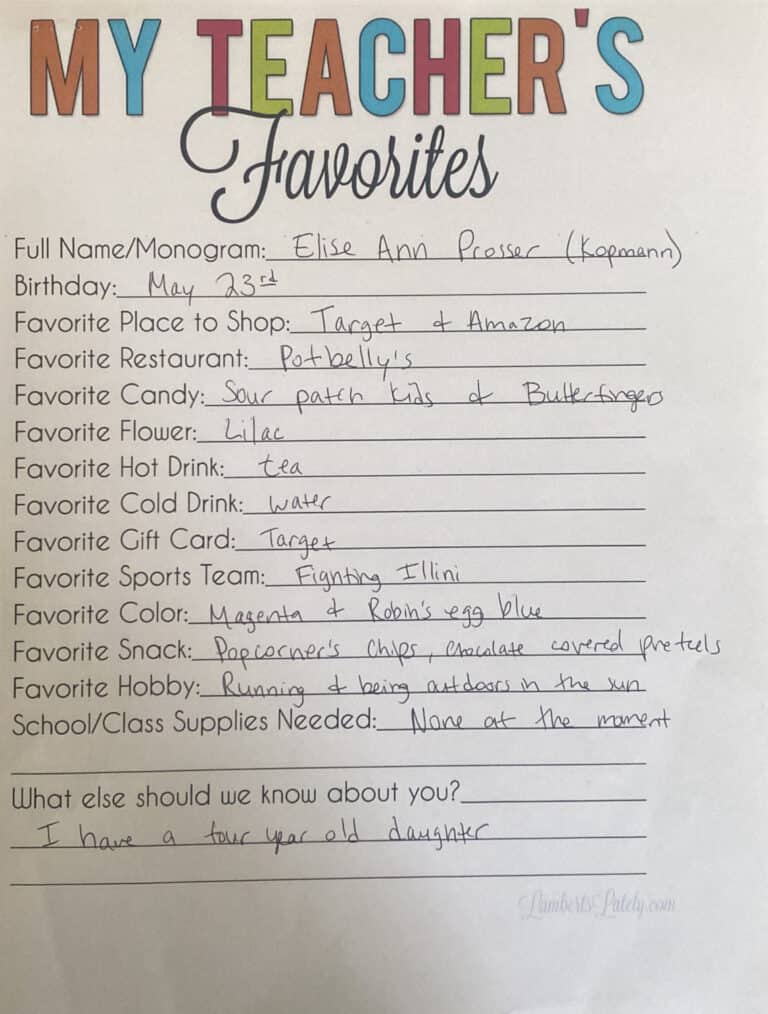 MY TEACHER'S
Favorites
Full Name/Monogram: Elise Ann Prosser (Kopmann)
Birthday: May 23rd
Favorite Place to Shop: Target & Amazon
Favorite Restaurant: Potbelly's
Favorite Candy: Sour patch kids & Butterfingers
Favorite Flower: Lilac
Favorite Hot Drink: tea
Favorite Cold Drink: water
Favorite Gift Card: Target
Favorite Sports Team: Fighting Illini
Favorite Color: Magenta & Robin's egg blue
Favorite Snack: Popcorner's Chips, chocolate covered pretzels
Favorite Hobby: Running & being outdoors in the sun
School/Class Supplies Needed: None at the moment
What else should we know about you?
I have a four year old daughter
LambertsLately.com